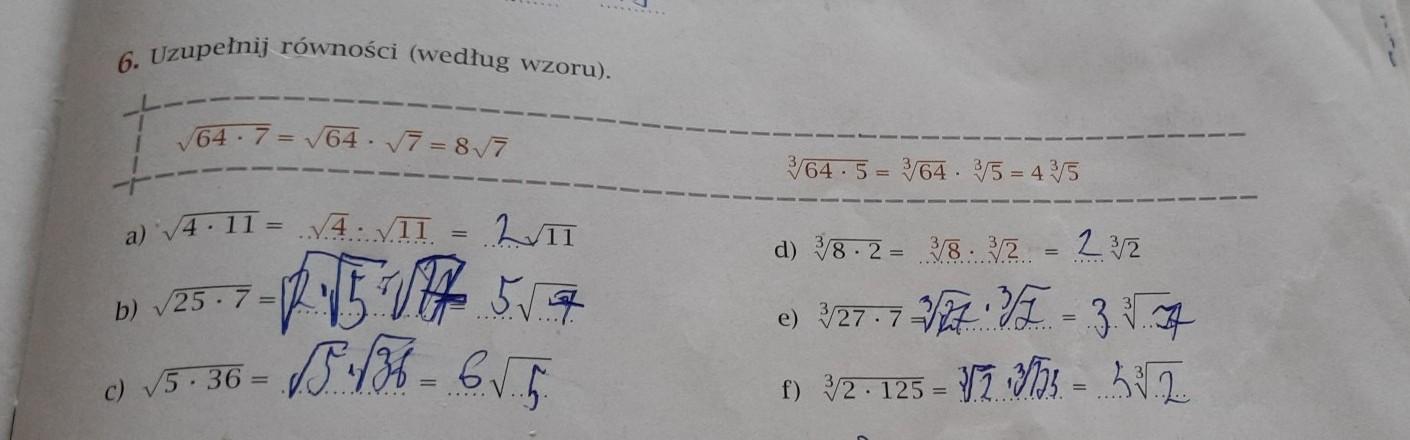 6. Uzupełnij równości (według wzoru).
√64 · 7 = √64 · √7 = 8√7
∛64 · 5 = ∛64 · ∛5 = 4 ∛5
a) √4 · 11 = √4 · √11 = 2√11
d) ∛8 · 2 = ∛8 · ∛2 = 2 ∛2
b) √25 · 7 = 5√7
e) ∛27 · 7 = ∛27 · ∛7 = 3 ∛7
c) √5 · 36 = √5 · √36 = 6√5
f) ∛2 · 125 = ∛2 · ∛125 = 5 ∛2